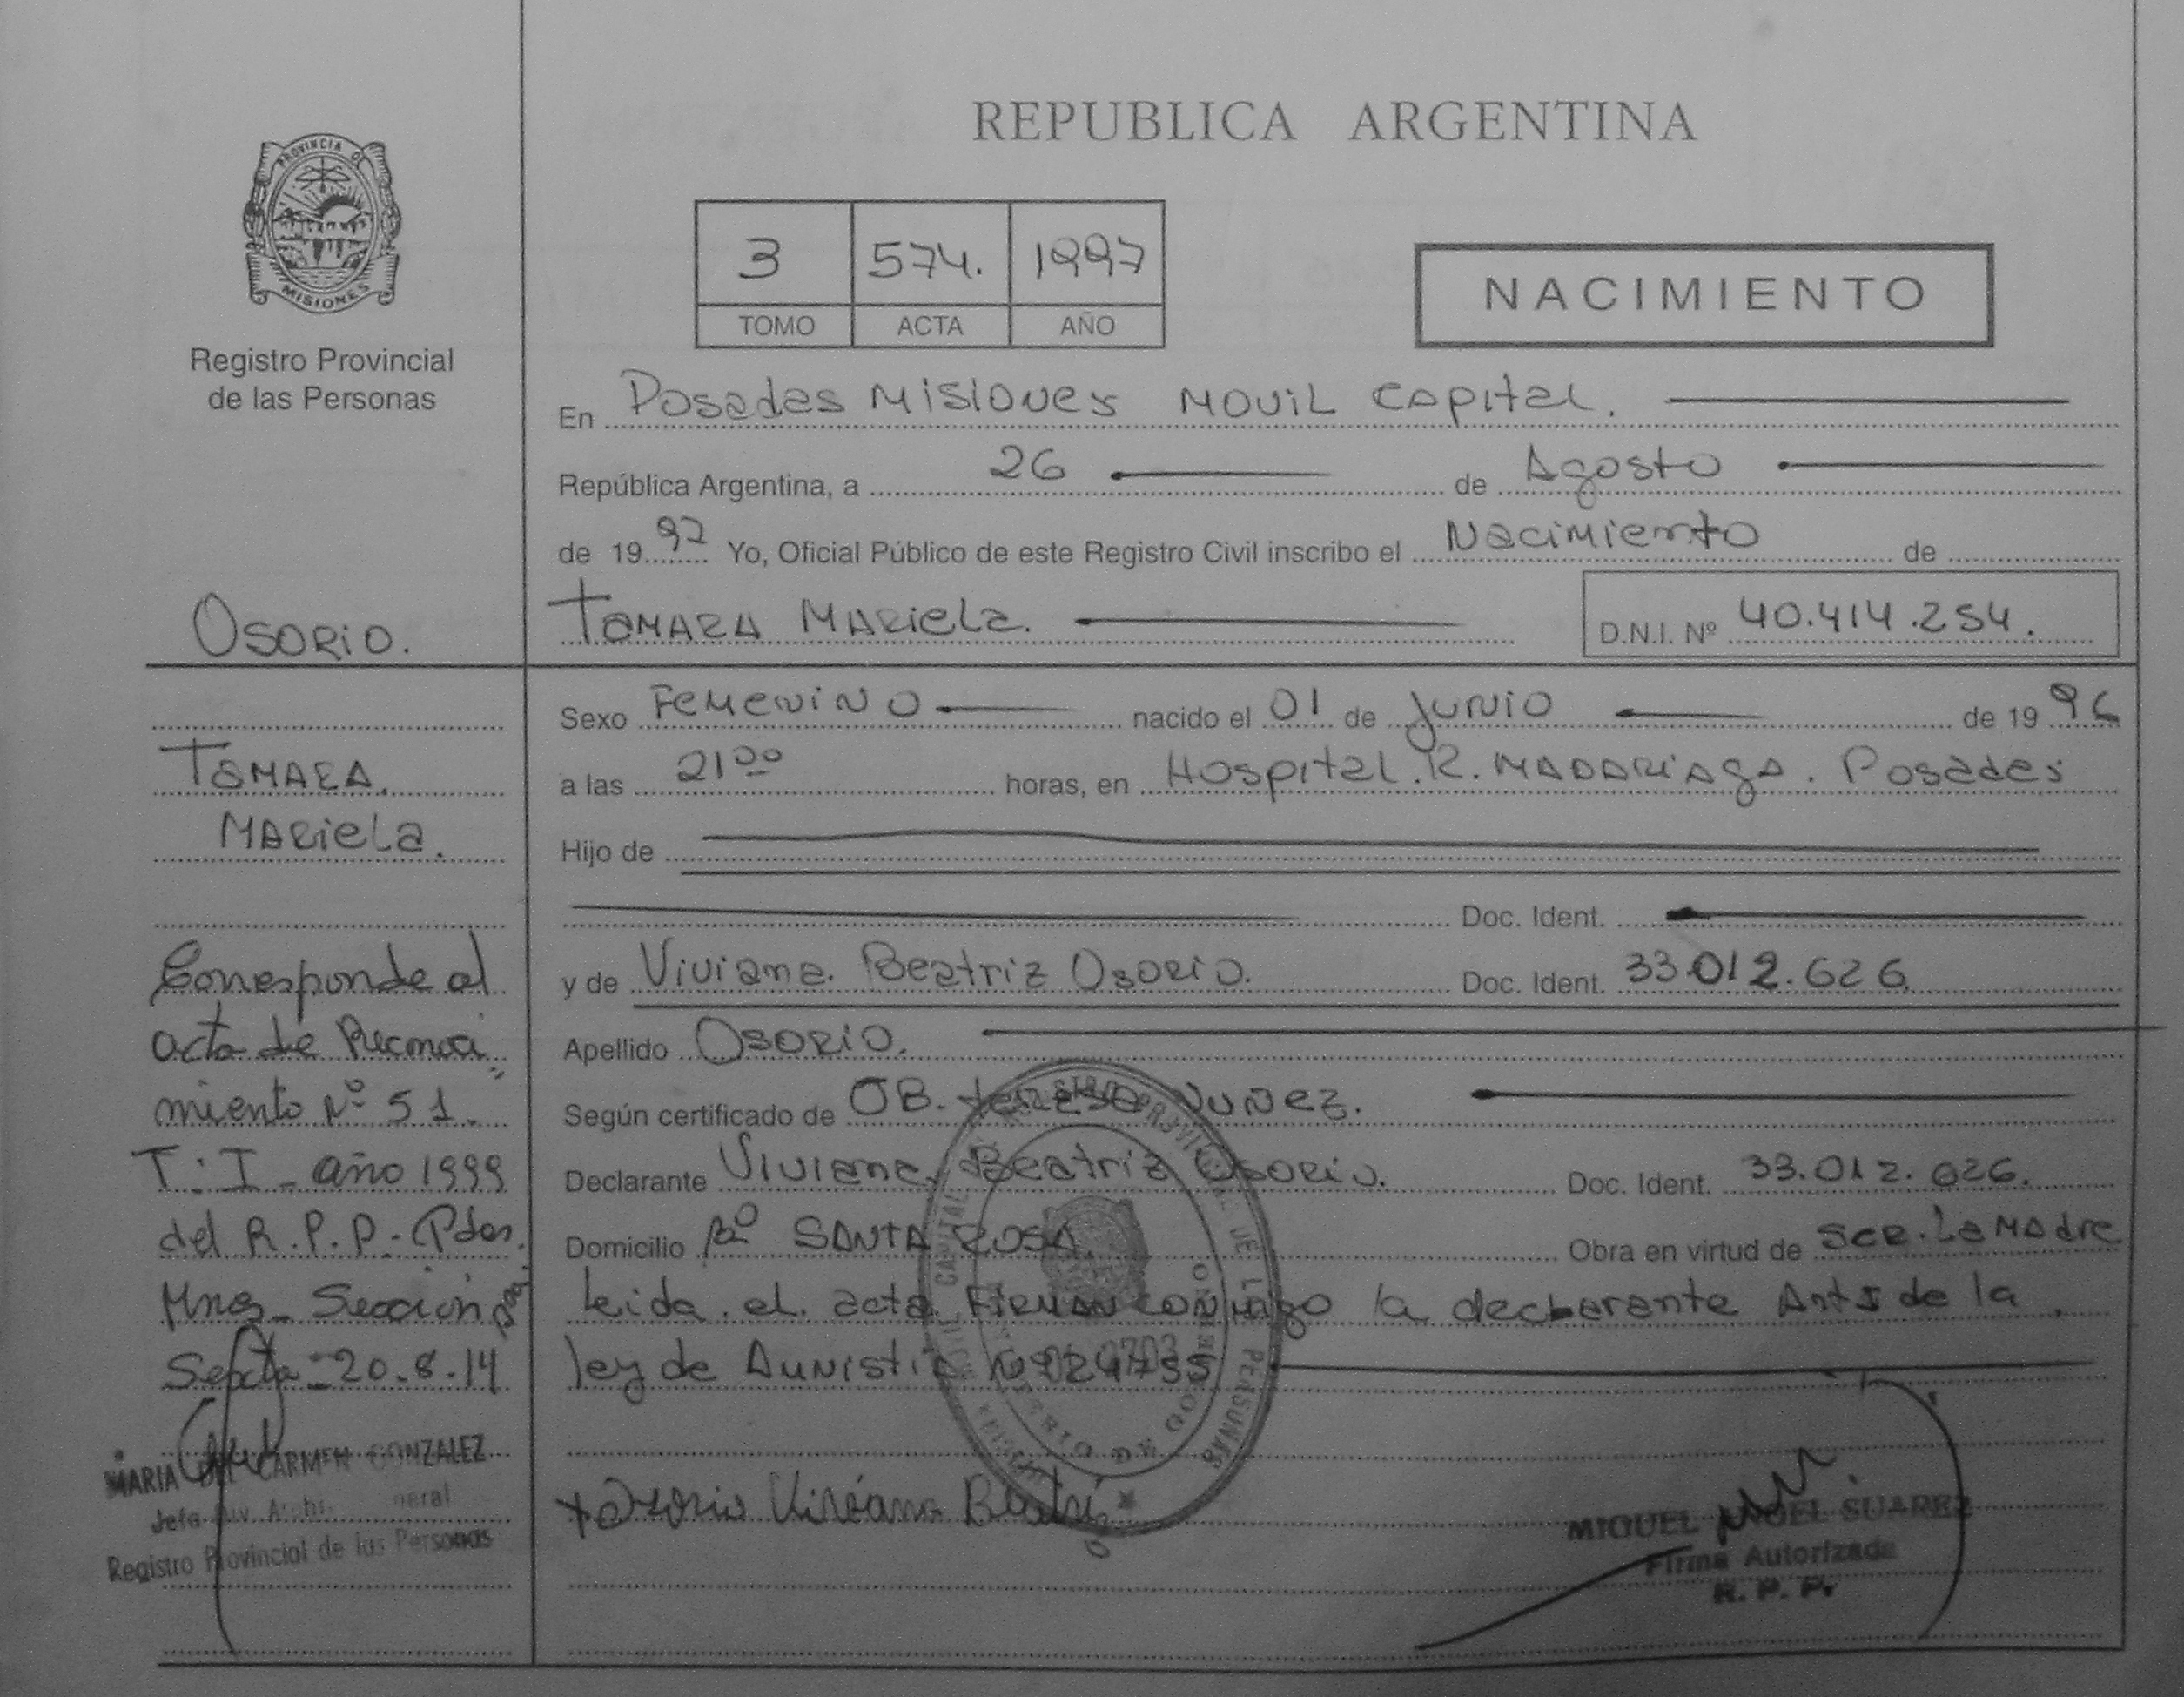 REPUBLICA ARGENTINA
PROVINCIA DE
MISIONES
Registro Provincial
de las Personas
3 574. 1997
TOMO ACTA AÑO
NACIMIENTO
En Posadas Misiones Movil Capital.
República Argentina, a 26 de Agosto
de 1997 Yo, Oficial Público de este Registro Civil inscribo el Nacimiento de
Tamara Mariela. D.N.I. Nº 40.414.254.
OSORIO.
Tamara
Mariela.
Corresponde al
acta de Reconoci
miento Nº 51.
T: I - año 1999
del R.P.P. - Pdas.
Mnes - Sección
Sexta - 20-8-14
MARIA DEL CARMEN GONZALEZ
Jefa Div. Arch. General
Registro Provincial de las Personas
Sexo Femenino nacido el 01 de Junio de 1996
a las 21 00 horas, en Hospital. R. Madariaga. Posadas
Hijo de
Doc. Ident.
y de Viviana Beatriz Osorio. Doc. Ident. 33.012.626
Apellido Osorio.
Según certificado de OB. Teresa Nuñez.
Declarante Viviana Beatriz Osorio. Doc. Ident. 33.012.626.
Domicilio Bº Santa Rosa. Obra en virtud de ser la Madre
Leida el acta Firman conmigo la declarante
ley de 24755
Osorio Viviana Beatriz
MIGUEL ANGEL SUAREZ
Firma Autorizada
R. P. P.
REGISTRO PROVINCIAL DE LAS PERSONAS